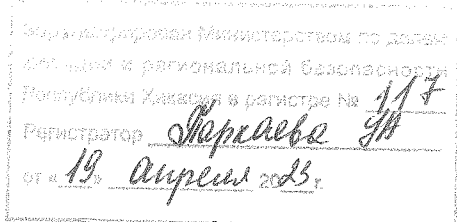 зарегистрирован Министерством по делам
юстиции и региональной безопасности
Республики Хакасия в регистре № 117
Регистратор Паркаева
от «19» апреля 2023 г.